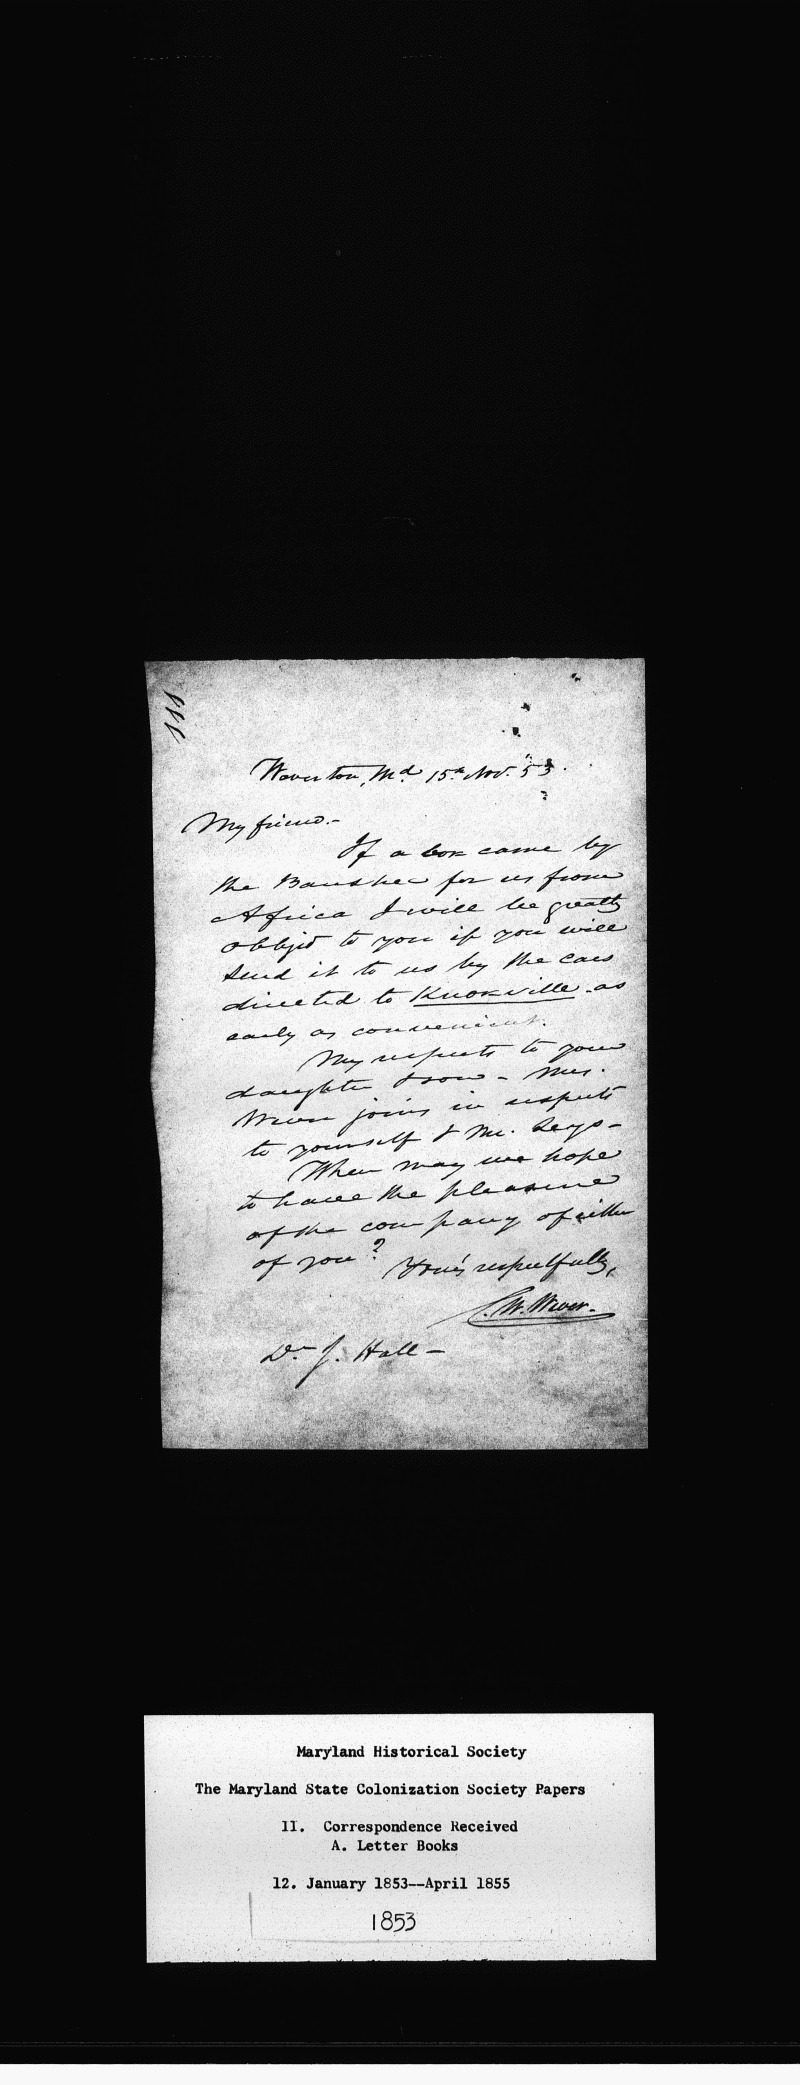 444
Weverton, Md 15th Nov. '53.
My friend.-
If a box came by
the Banshee for us from
Africa I will be greatly
obliged to you if you will
send it to us by the cars
directed to Knoxville as
early as convenient.
My respects to your
daughter & son - Mrs.
Wever joins in respects
to yourself & Mr. Seys-
When may we hope
to have the pleasure
of the company of either
of you?
Yours respectfully,
C. W. Wever.
Dr J. Hall-
Maryland Historical Society
The Maryland State Colonization Society Papers
11. Correspondence Received
A. Letter Books
12. January 1853--April 1855
1853